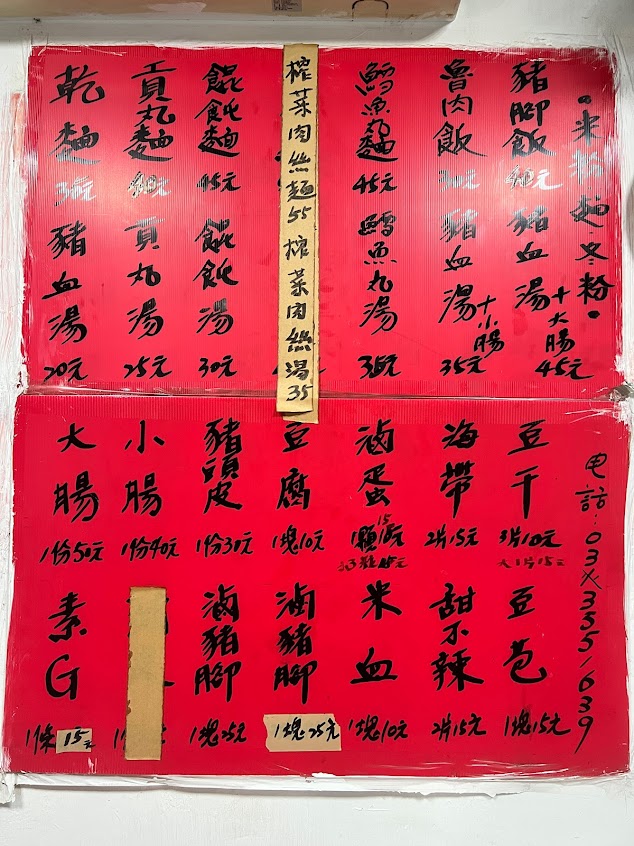 •米粉.麵.冬粉•
豬腳飯
40元
魯肉飯
30元
鱈魚丸麵
45元
榨菜肉絲麵55 榨菜肉絲湯35
餛飩麵
45元
貢丸麵
40元
乾麵
30元
豬血湯
+大腸
45元
豬血湯
+小腸
35元
鱈魚丸湯
35元
餛飩湯
30元
貢丸湯
25元
豬血湯
20元
电話:03 3351639
豆干
3片10元
海帶
2片15元
滷蛋
1顆15元
豆腐
1塊10元
豬頭皮
1份30元
小腸
1份40元
大腸
1份50元
豆苞
1塊15元
甜不辣
2片15元
米血
1塊10元
滷豬腳
1塊25元
滷豬腳
1塊25元
素G
1條15元